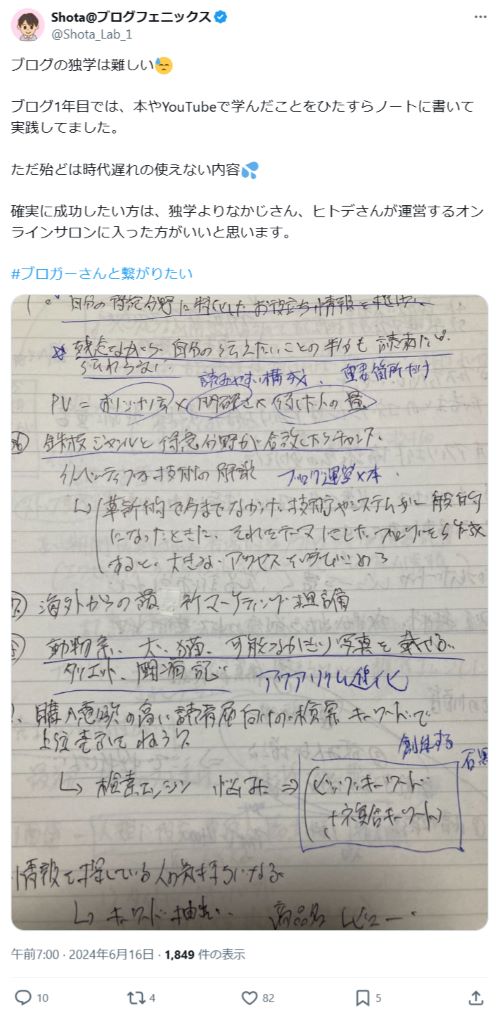 Shota@ブログフェニックス
@Shota_Lab_1
ブログの独学は難しい😓
ブログ1年目では、本やYouTubeで学んだことをひたすらノートに書いて
実践してました。
ただ殆どは時代遅れの使えない内容💦
確実に成功したい方は、独学よりなかじさん、ヒトデさんが運営するオン
ラインサロンに入った方がいいと思います。
#ブロガーさんと繋がりたい
自分の得意分野に特化したお役立ち情報を
残念ながら、自分の伝えたいことの半分も読者には
伝わらない
読みやすい構成、重要箇所だけ
PV = オリジナル × 明確さ × 欲しい人の量
鉄板ジャンルと得意分野が合致したらチャンス。
技術の解説 ブログ運営×本
革新的で今までなかった技術やシステムが一般的
になったときに、それをテーマにしたブログを
すると、大きなアクセス
海外からの最新マーケティング
動物系、犬、猫、可能なかぎり写真を載せる
ダイエット、闘病記 アクアリウム進化
購入意欲の高い読者層向けの検索キーワードで
上位表示
検索エンジン 悩み ⇒ (ビッグキーワード
+複合キーワード)
情報を探している人の気持ちになる
キーワード抽出 商品名 レビュー
午前7:00 · 2024年6月16日 · 1,849 件の表示
10 4 82 5